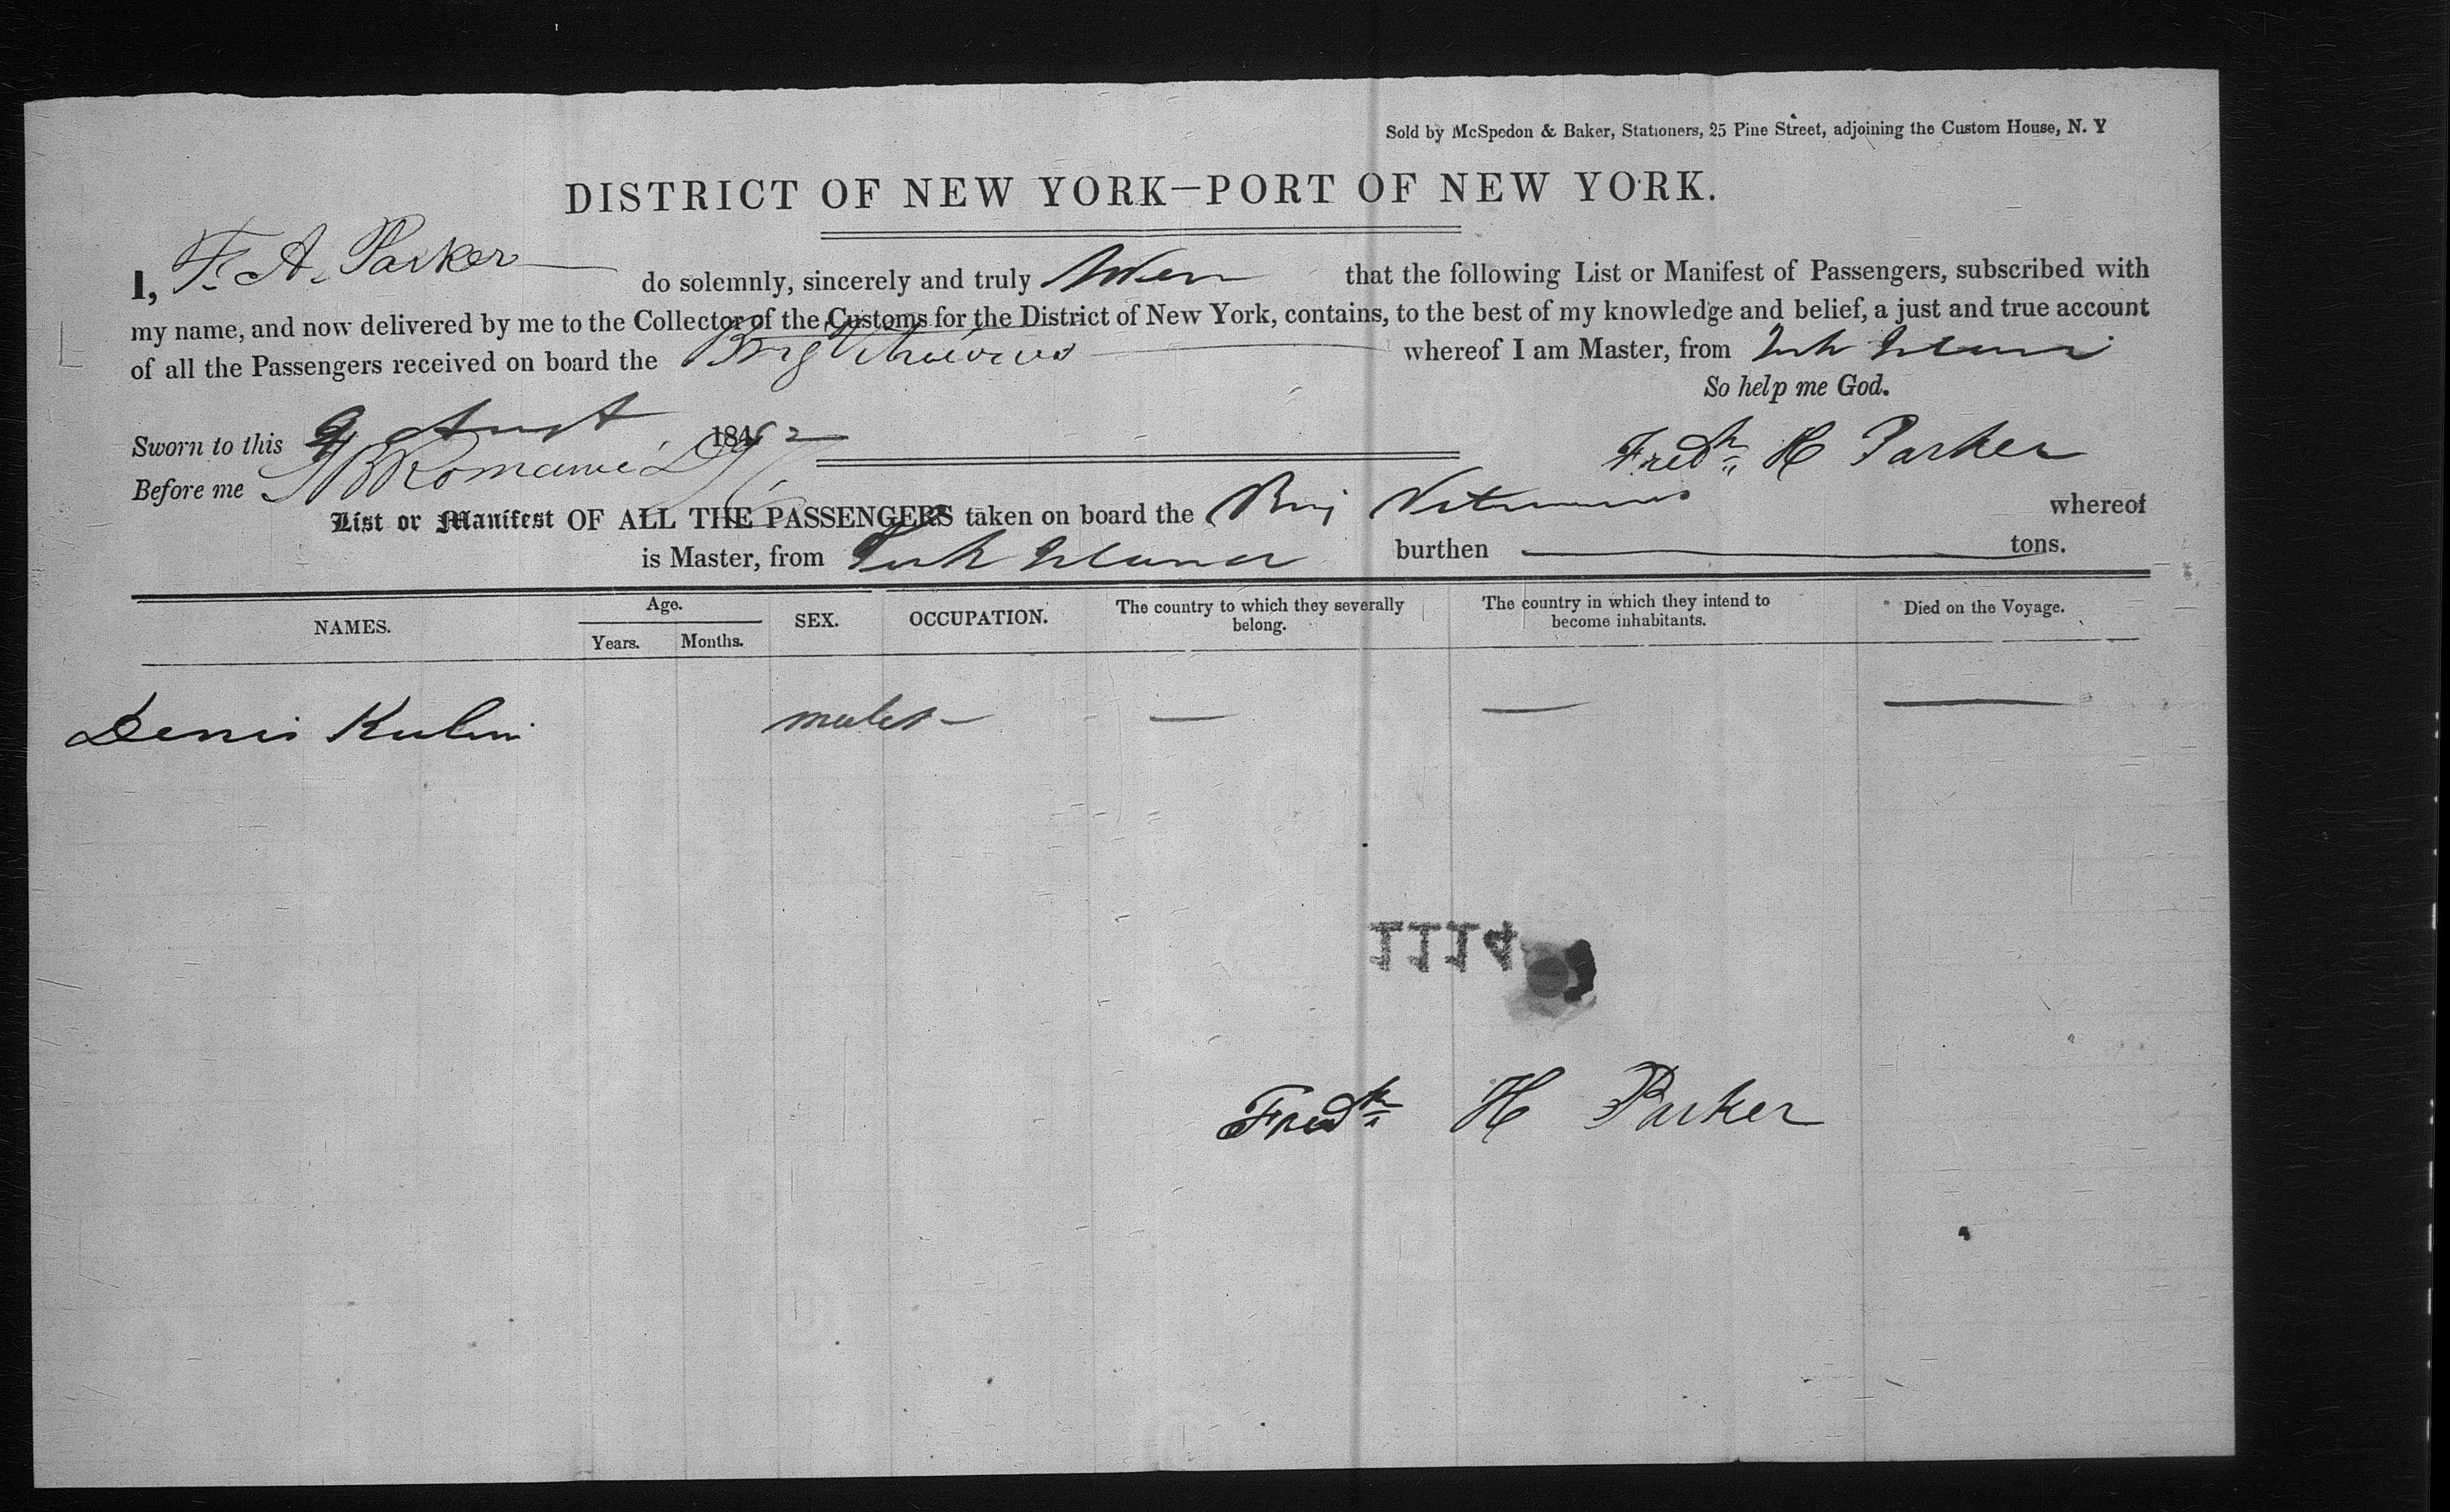 Sold by McSpedon & Baker, Stationers, 25 Pine Street, adjoining the Custom House, N. Y
DISTRICT OF NEW YORK—PORT OF NEW YORK.
I, F. A. Parker do solemnly, sincerely and truly that the following List or Manifest of Passengers, subscribed with
my name, and now delivered by me to the Collector of the Customs for the District of New York, contains, to the best of my knowledge and belief, a just and true account
of all the Passengers received on board the Brig whereof I am Master, from
So help me God.
Sworn to this 9 184
Fredk H Parker
Before me
List or Manifest OF ALL THE PASSENGERS taken on board the Brig whereof
is Master, from Turk Island burthen tons.
NAMES. Age. Years. Months. SEX. OCCUPATION. The country to which they severally belong. The country in which they intend to become inhabitants. Died on the Voyage.
Denis
Fredk H Parker